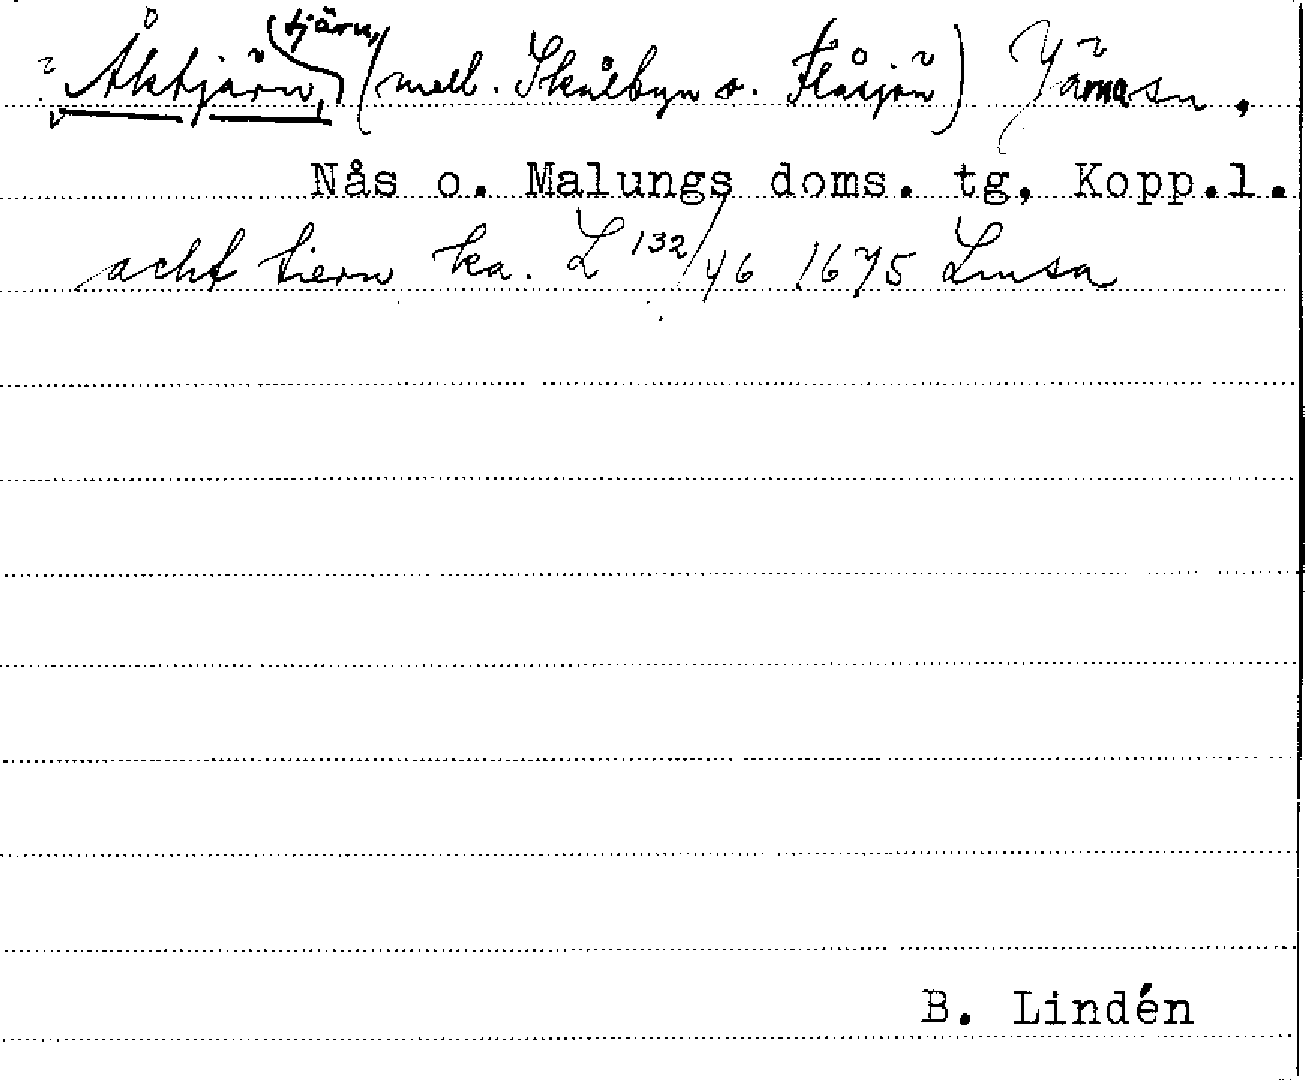 ? Åktjärn, tjärn, (mell. Skålbyn o. Flåsjön) Järna sn.
Nås o. Malungs doms. tg. Kopp.l.
acht tiern ka. L 132/46 1675 Limsa
B. Lindén